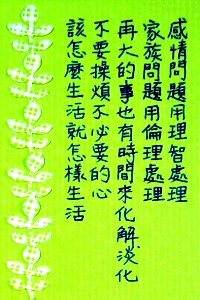 感情問題用理智處理
家族問題用倫理處理
再大的事也有時間來化解淡化
不要操煩不必要的心
該怎麼生活就怎樣生活